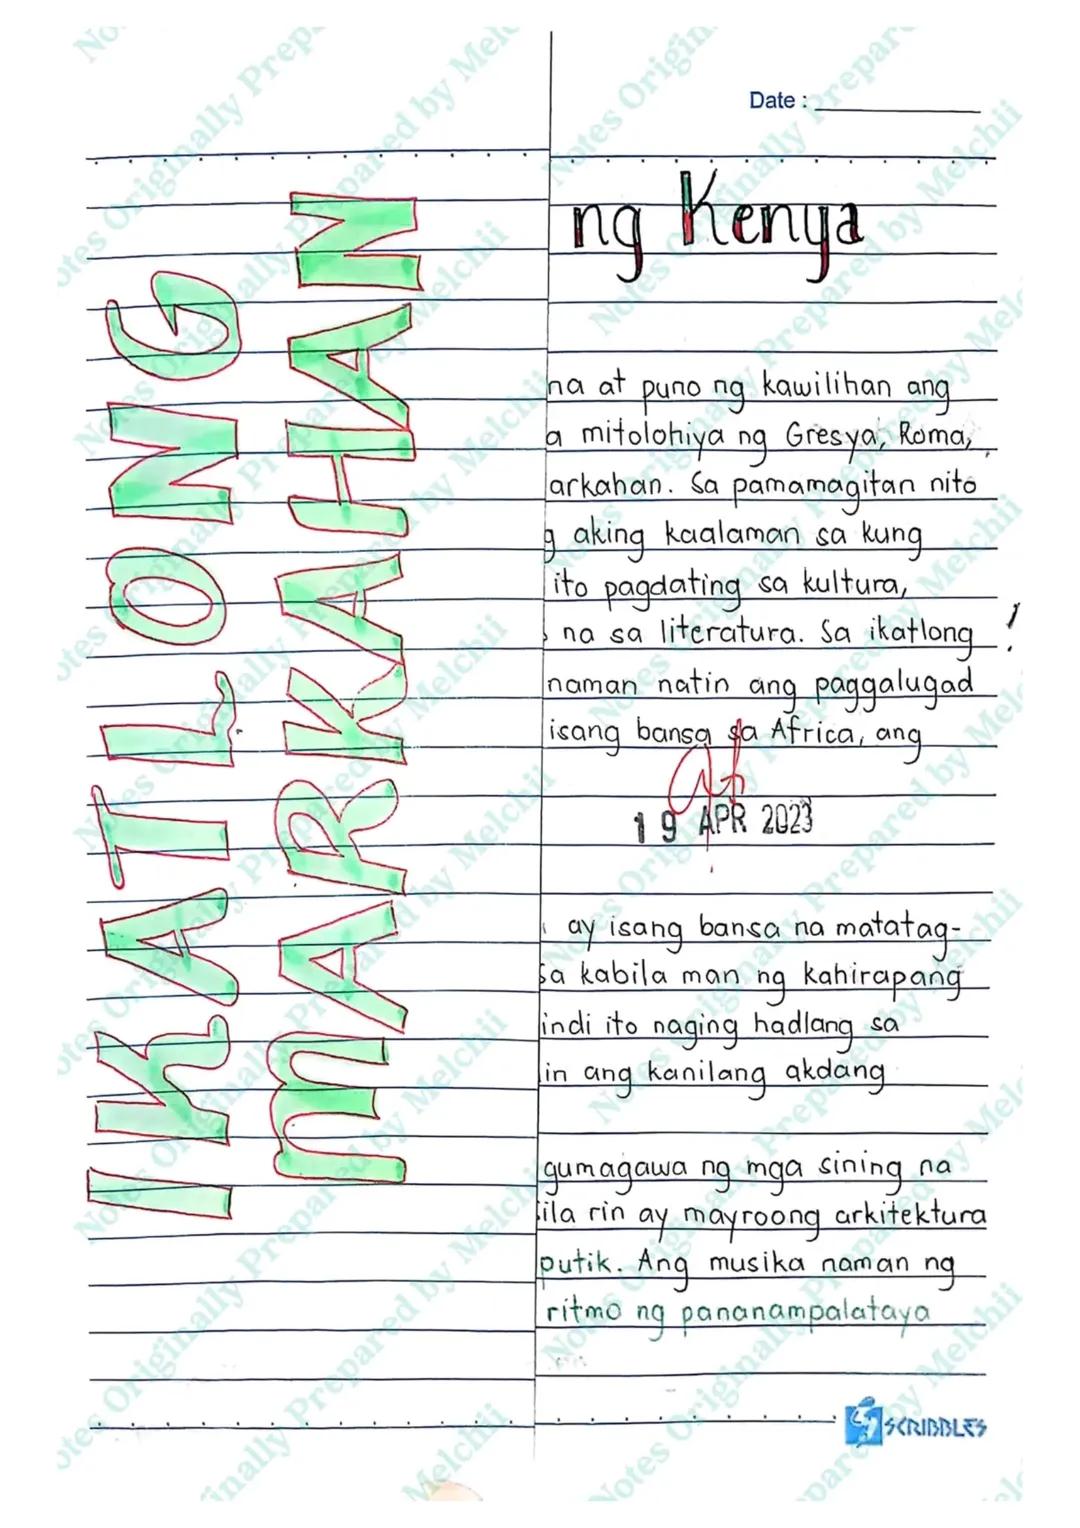 Date :
IKATLONG
MARKAHAN
ng Kenya
na at puno ng kawilihan ang
a mitolohiya ng Gresya, Roma,
arkahan. Sa pamamagitan nito
g aking kaalaman sa kung
ito pagdating sa kultura,
na sa literatura. Sa ikatlong
naman natin ang paggalugad
isang bansa sa Africa, ang
19 APR 2023
ay isang bansa na matatag-
sa kabila man ng kahirapang
indi ito naging hadlang sa
in ang kanilang akdang
gumagawa ng mga sining na
ila rin ay mayroong arkitektura
putik. Ang musika naman ng
ritmo ng pananampalataya
SCRIBBLES
Notes Originally Prepared by Melchii